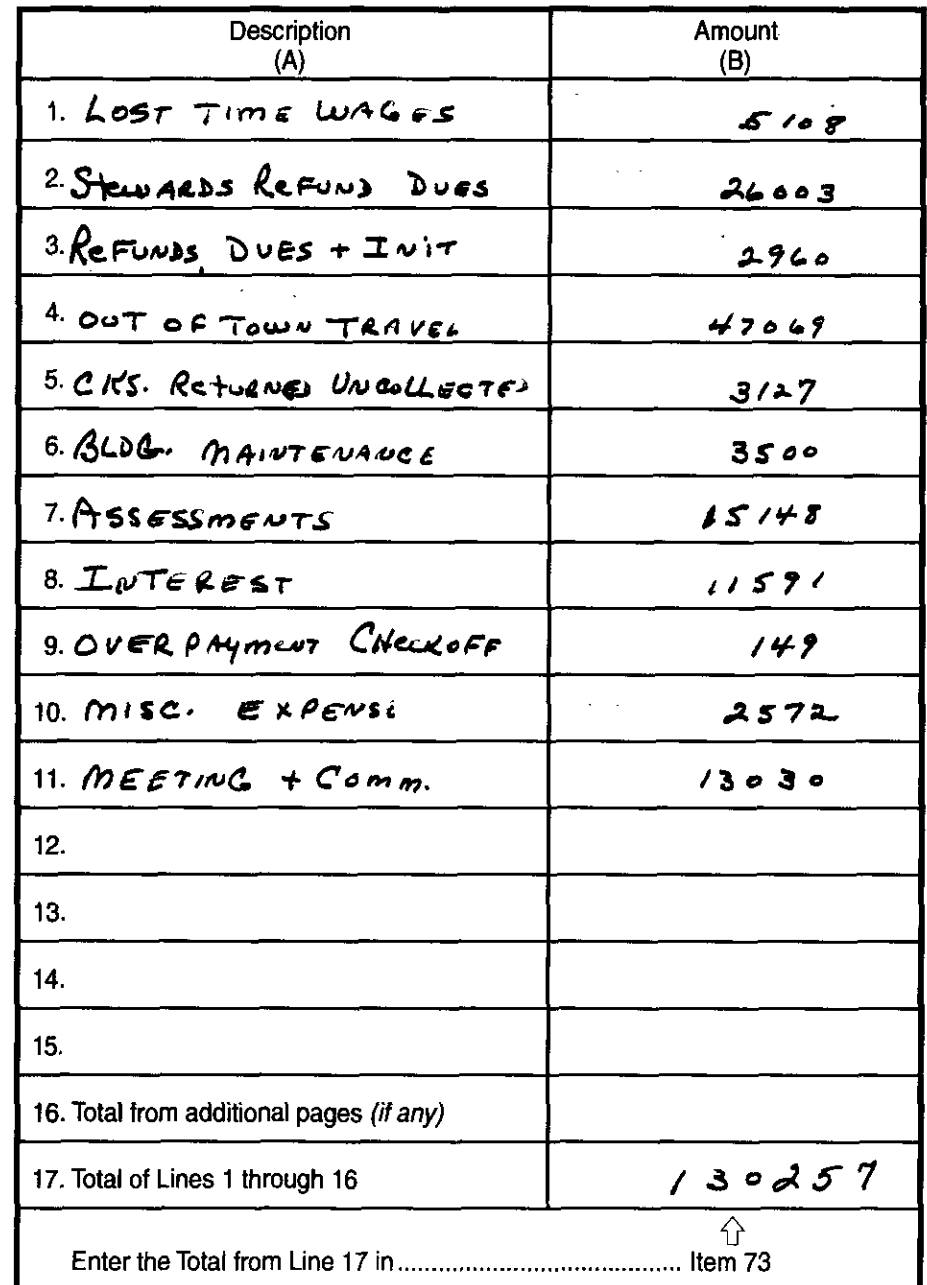 Description Amount
(A) (B)
1. LOST TIME WAGES 5108
2. Stewards Refund Dues 26003
3. Refunds, Dues + Init 2960
4. OUT OF TOWN TRAVEL 47069
5. CKS. Returned UNCOLLECTED 3127
6. BLDG. MAINTENANCE 3500
7. ASSESSMENTS 15148
8. INTEREST 11591
9. OVERPAYMENT CHECKOFF 149
10. MISC. EXPENSE 2572
11. MEETING + Comm. 13030
12.
13.
14.
15.
16. Total from additional pages (if any)
17. Total of Lines 1 through 16 130257
Enter the Total from Line 17 in .......................................... Item 73